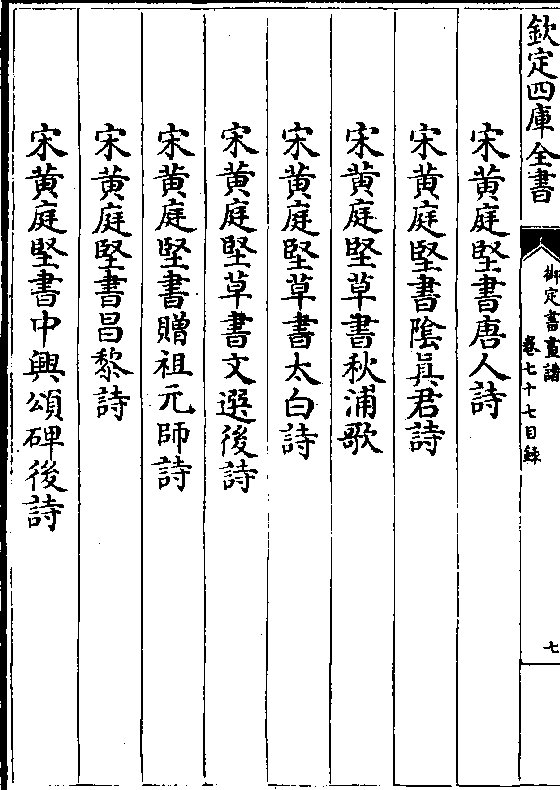 欽定四庫全書
御定書畫譜
卷七十七目錄
七
宋黄庭堅書唐人詩
宋黄庭堅書陰真君詩
宋黄庭堅草書秋浦歌
宋黄庭堅草書太白詩
宋黄庭堅草書文選後詩
宋黄庭堅書贈祖元師詩
宋黄庭堅書昌黎詩
宋黄庭堅書中興頌碑後詩